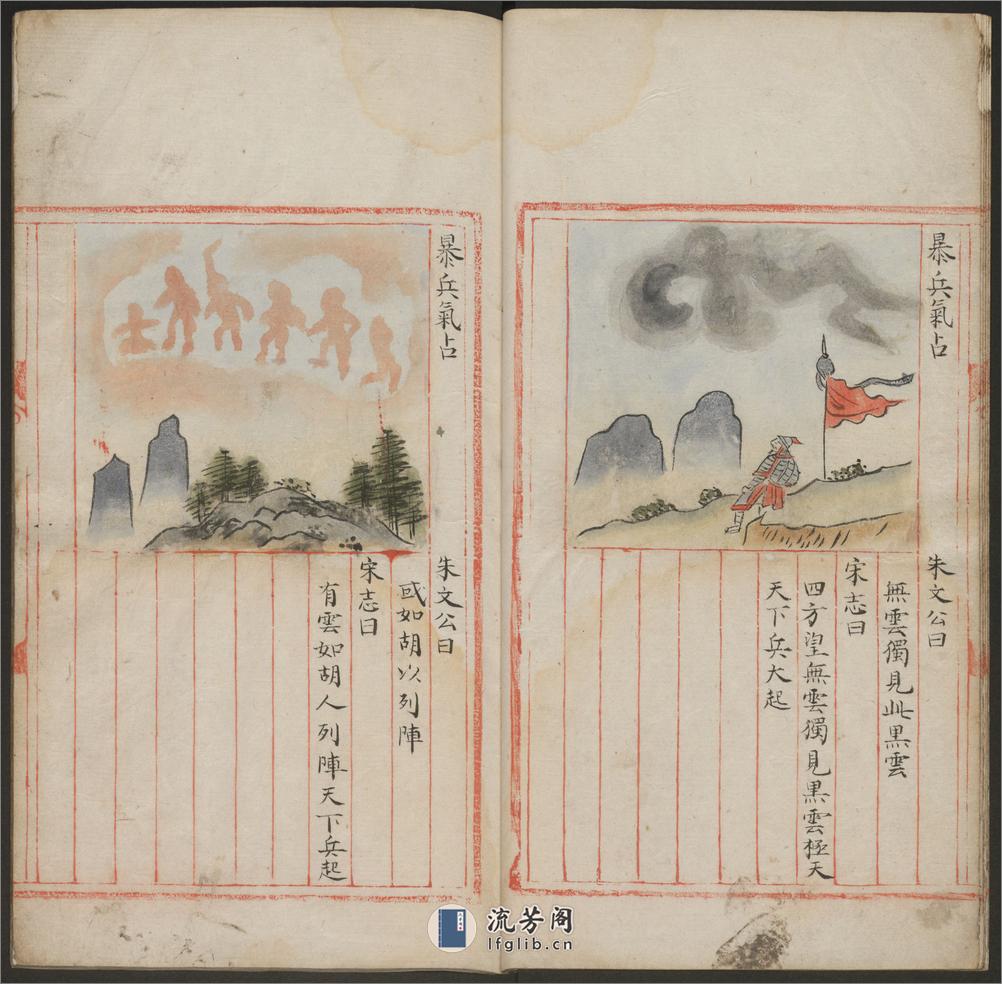 暴兵氣占
朱文公曰
無雲獨見此黑雲
宋志曰
四方望無雲獨見黒雲極天
天下兵大起
暴兵氣占
朱文公曰
或如胡以列陣
宋志曰
有雲如胡人列陣天下兵起
流芳阁
lfglib.cn